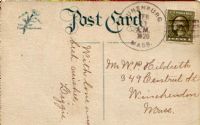 Post Card
BURG
A.M.
1920
MASS.
With love and
best wishes,
Mr W P Hildreth
349 Central St
Winchendon
Mass.